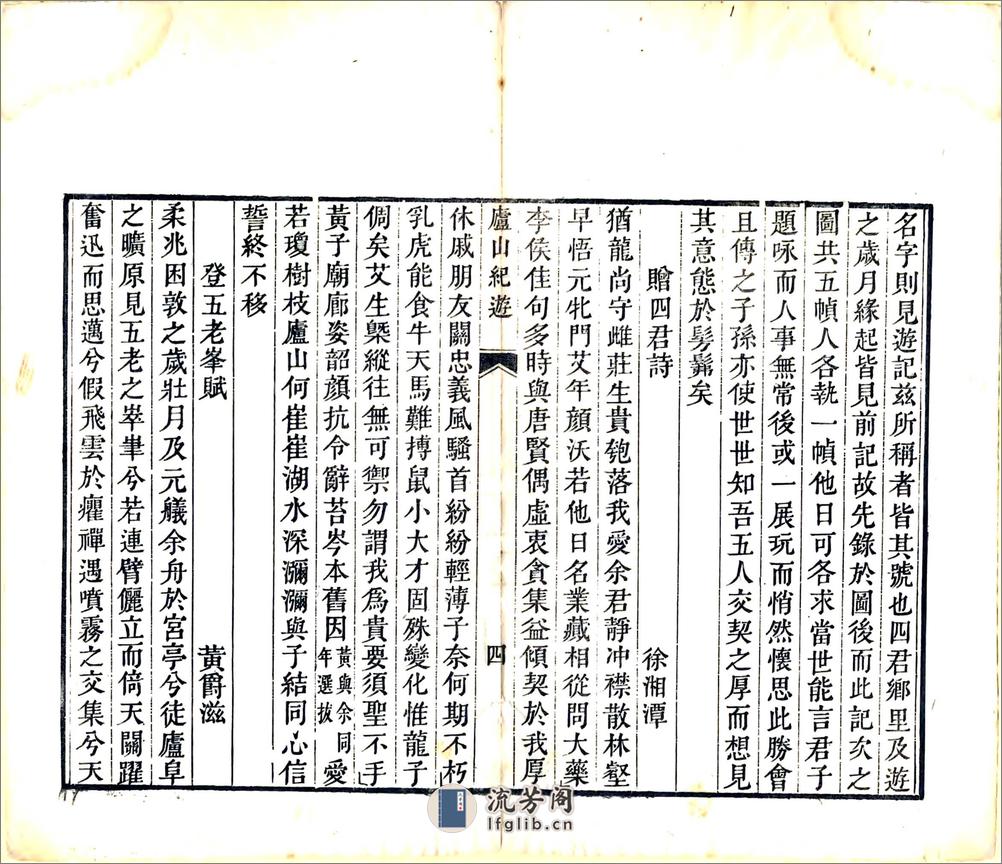 名字則見遊記茲所稱者皆其號也四君鄉里及遊
之歲月緣起皆見前記故先錄於圖後而此記次之
圖共五幀人各執一幀他日可各求當世能言君子
題咏而人事無常後或一展玩而悄然懷思此勝會
且傳之子孫亦使世世知吾五人交契之厚而想見
其意態於髣髴矣
贈四君詩 徐湘潭
猶龍尚守雌莊生貴匏落我愛余君靜冲襟散林壑
早悟元牝門艾年顏沃若他日名業藏相從問大藥
李侯佳句多時與唐賢偶虛衷貪集益傾契於我厚
廬山紀遊 四
休戚朋友關忠義風騷首紛紛輕薄子奈何期不朽
乳虎能食牛天馬難搏鼠小大才固殊變化惟龍子
倜矣艾生槩縱往無可禦勿謂我爲貴要須聖不手
黃子廟廊姿韶顏抗令辭苔岑本舊因黃與余同年選拔愛
若瓊樹枝廬山何崔崔湖水深瀰瀰與子結同心信
誓終不移
登五老峯賦 黃爵滋
柔兆困敦之歲壯月及元艤余舟於宮亭兮徒廬阜
之曠原見五老之崒聿兮若連臂儷立而倚天關躍
奮迅而思邁兮假飛雲於癯禪遇噴霧之交集兮天
流芳阁
lfglib.cn